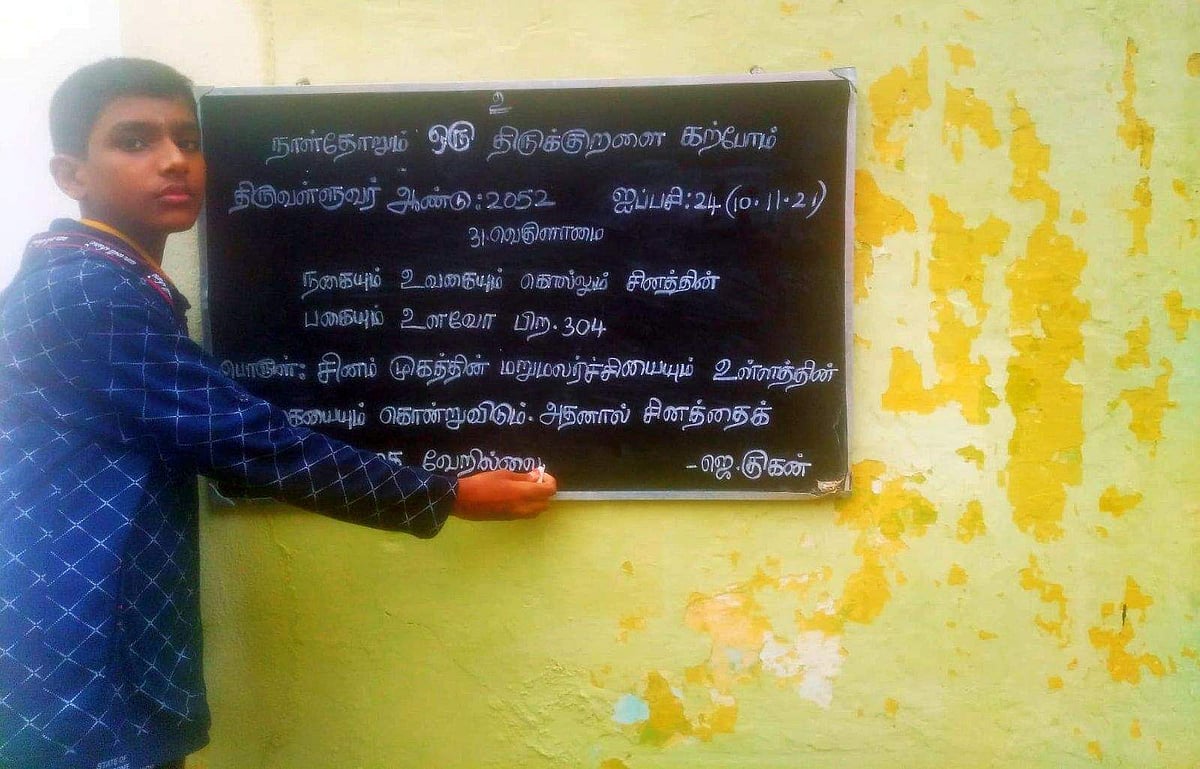 உ
நாள்தோறும் ஒரு திருக்குறளை கற்போம்
திருவள்ளுவர் ஆண்டு: 2052 ஐப்பசி: 24 (10.11.21)
31. வெகுளாமை
நகையும் உவகையும் கொல்லும் சினத்தின்
பகையும் உளவோ பிற. 304
பொருள்: சினம் முகத்தின் மறுமலர்ச்சியையும் உள்ளத்தின்
கொன்றுவிடும். அதனால் சினத்தைக்
வேறில்லை
- ஜெ. குகன்
STATE OF